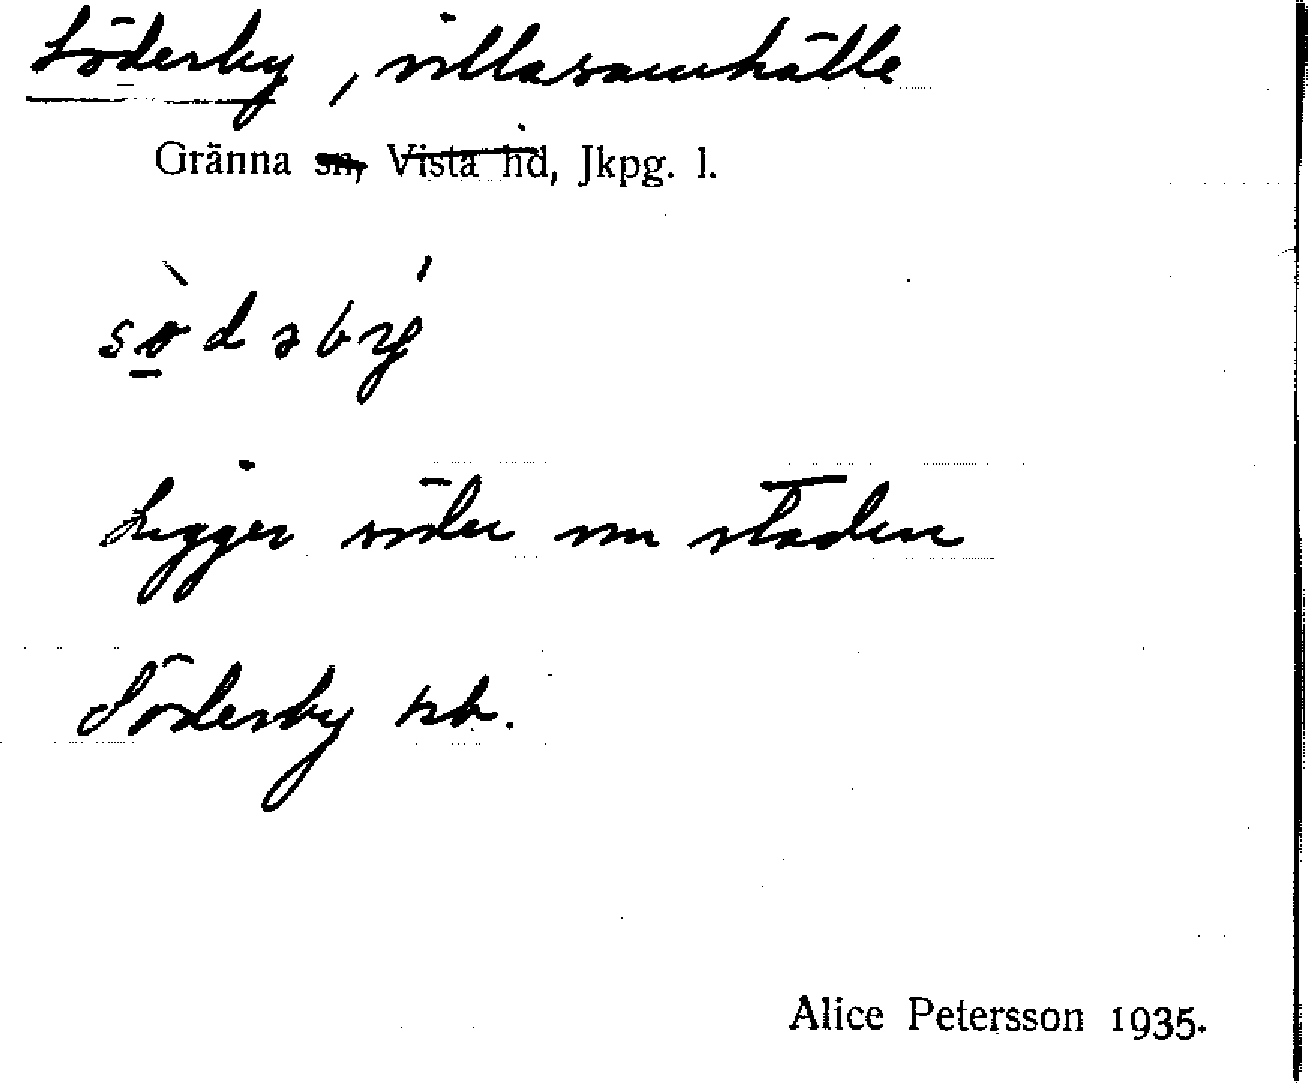 Söderby, villasamhälle
Gränna sn, Vista hd, Jkpg. l.
sø̀dəbý
Ligger söder om staden
Söderby
Alice Petersson 1935.